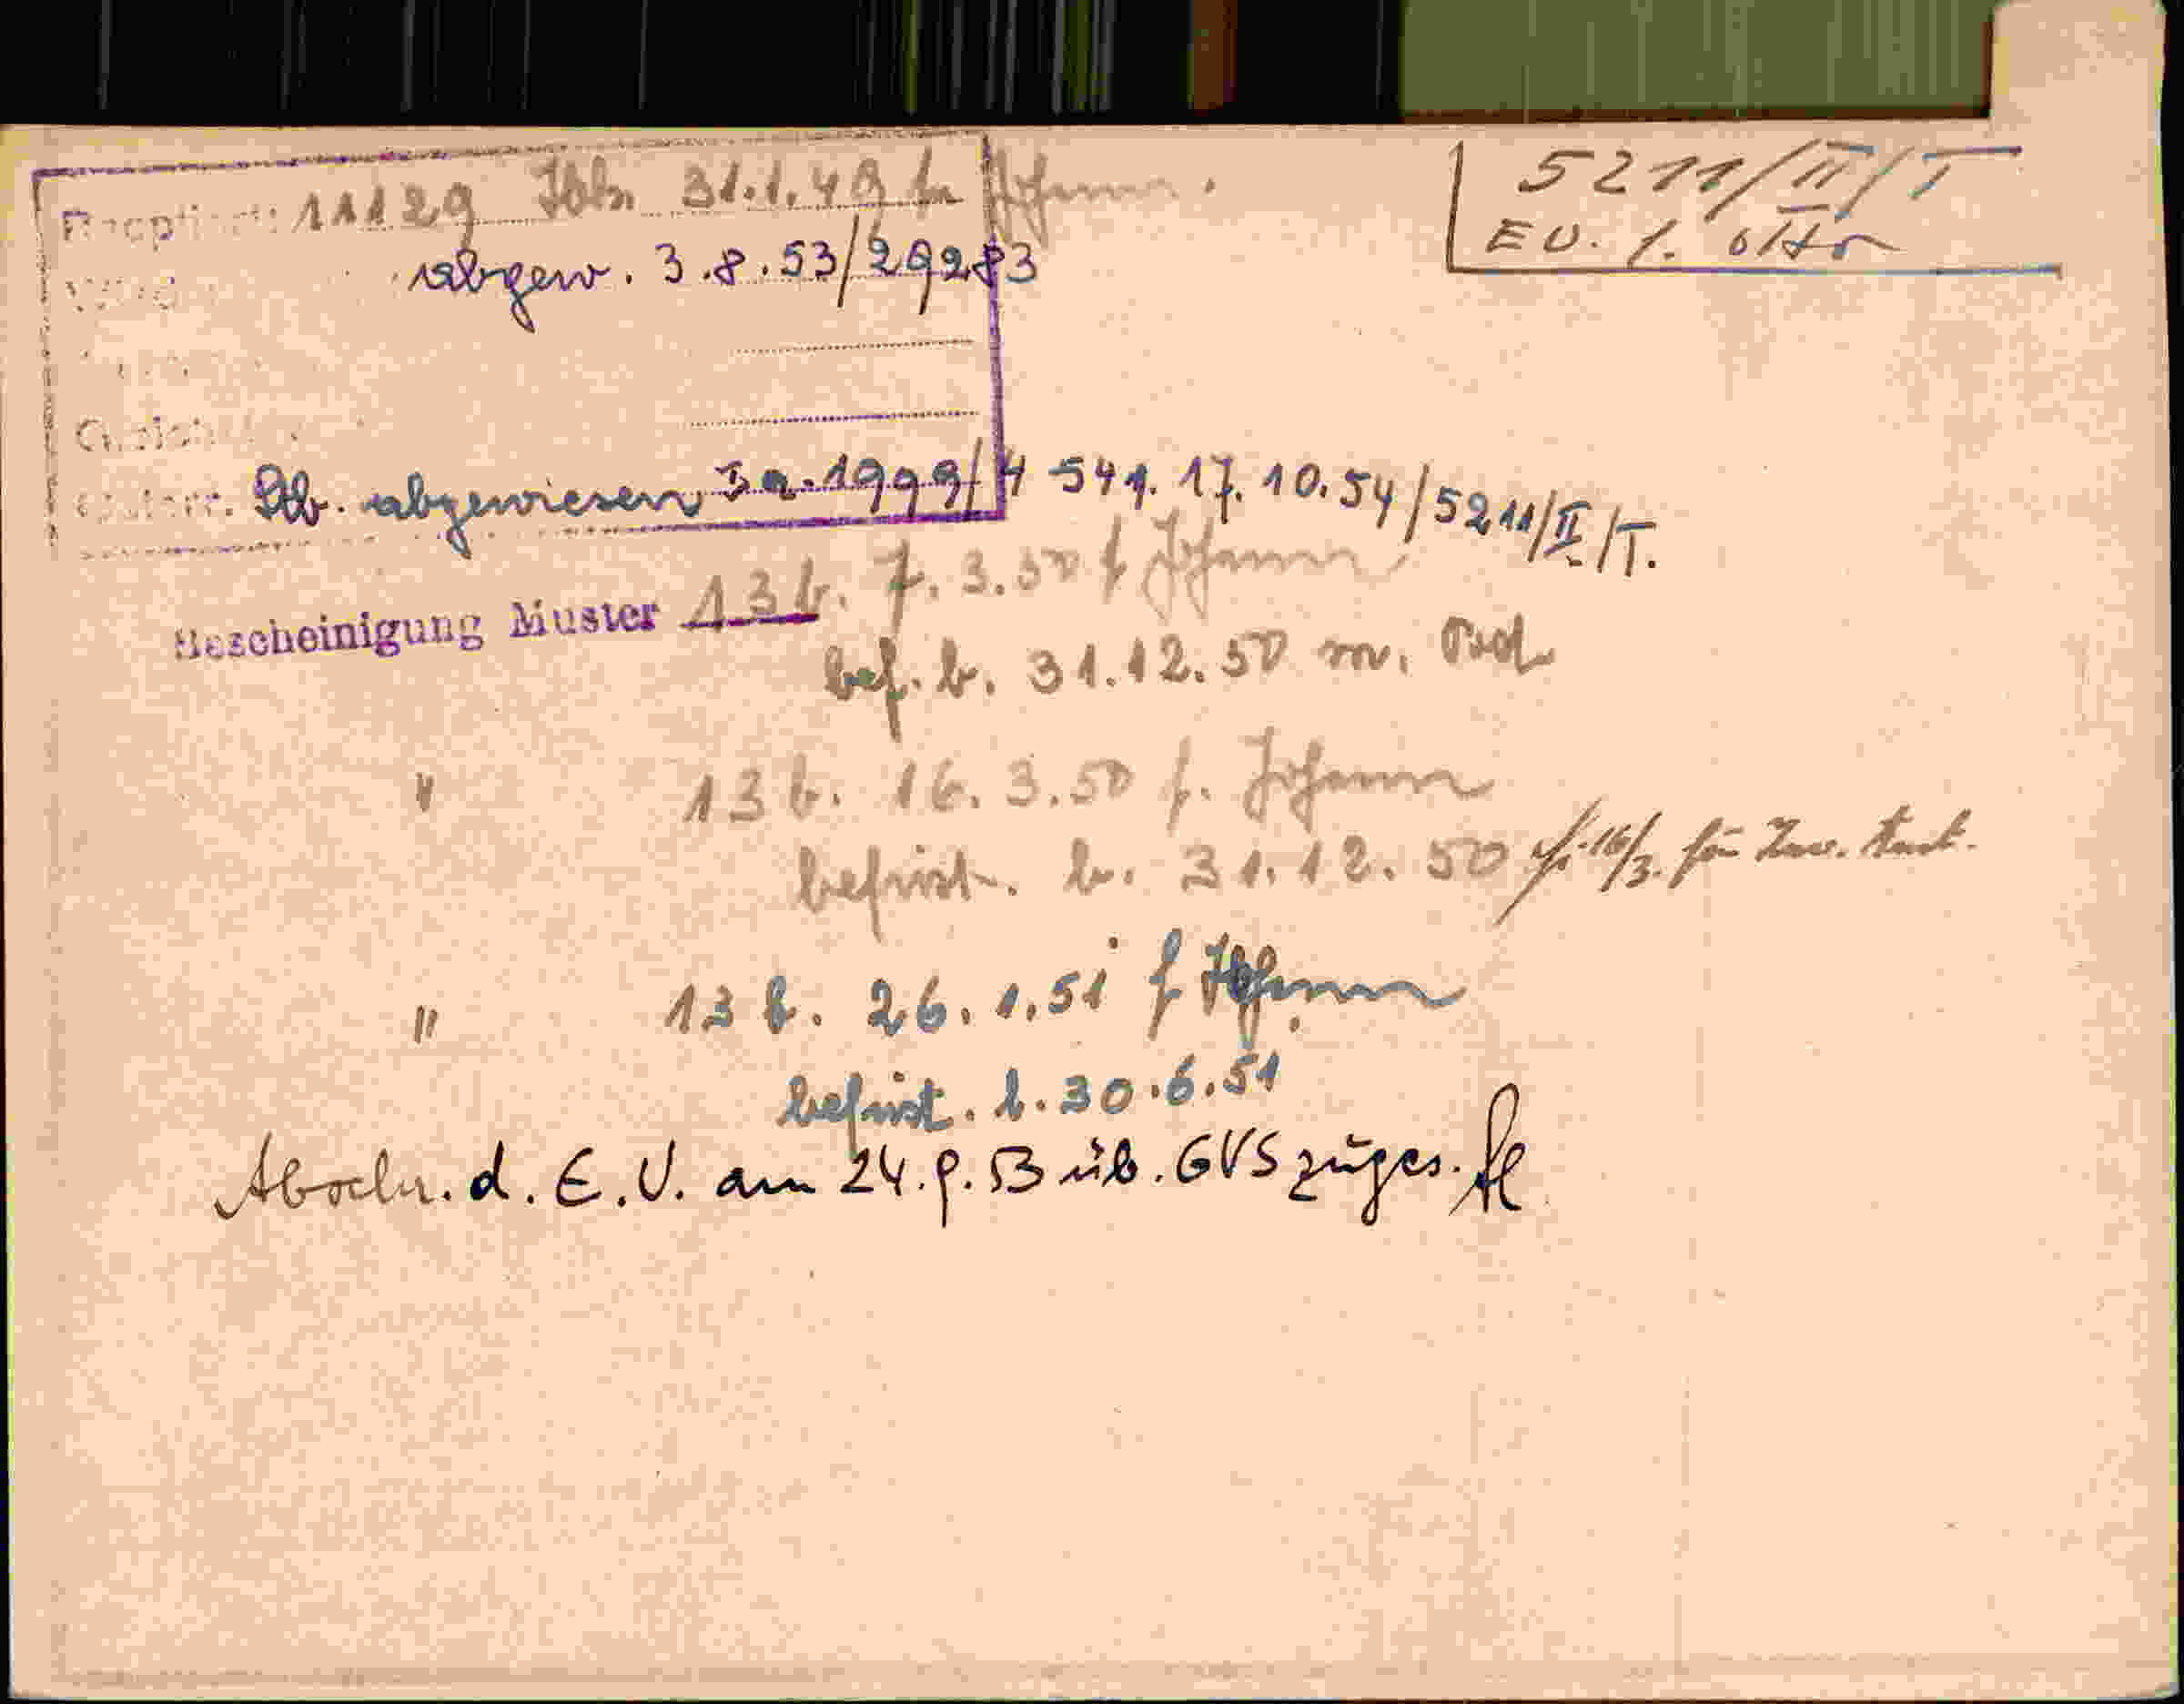 5211/II/T
EV. f. Otto
11129 31.1.49 Johann.
abgew. 3.8.53/29283
Stb. abgewiesen 17.10.54/5211/II/T.
Bescheinigung Muster 13b. 7.3.50 f Johann
bef. b. 31.12.50
" 13b. 16.3.50 f. Johann
befrist. b. 31.12.50 16/3. für
" 13b. 26.1.51 f Johann
befrist. b. 30.6.51
Abschr. d. E.V. am 24.9.53 üb. GVS zuges.